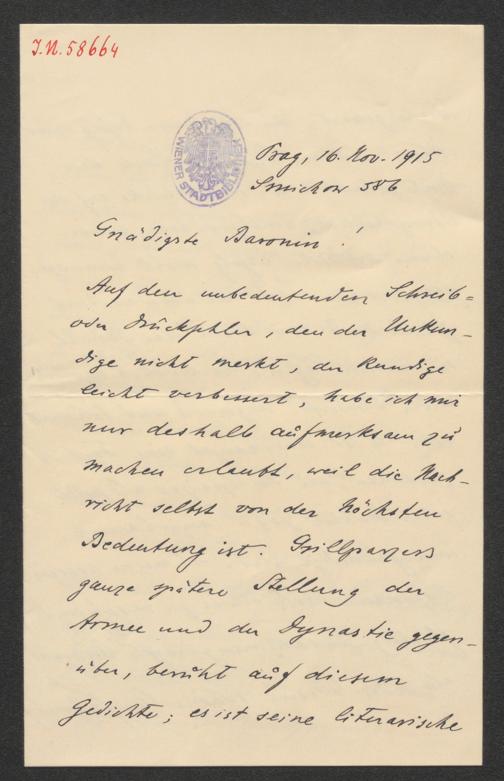 J.N. 58664
WIENER STADTBIBLIOTHEK
Prag, 16. Nov. 1915
Smichow 586
Gnädigste Baronin!
Auf den unbedeutenden Schreib=
oder Drückfehler, den der Unkun-
dige nicht merkt, der Kundige
leicht verbessert, habe ich mir
nur deshalb aufmerksam zu
machen erlaubt, weil die Nach-
richt selbst von der höchsten
Bedeutung ist. Grillparzers
ganze spätere Stellung der
Armee und der Dynastie gegen-
über, beruht auf diesem
Gedichte; es ist seine literarische